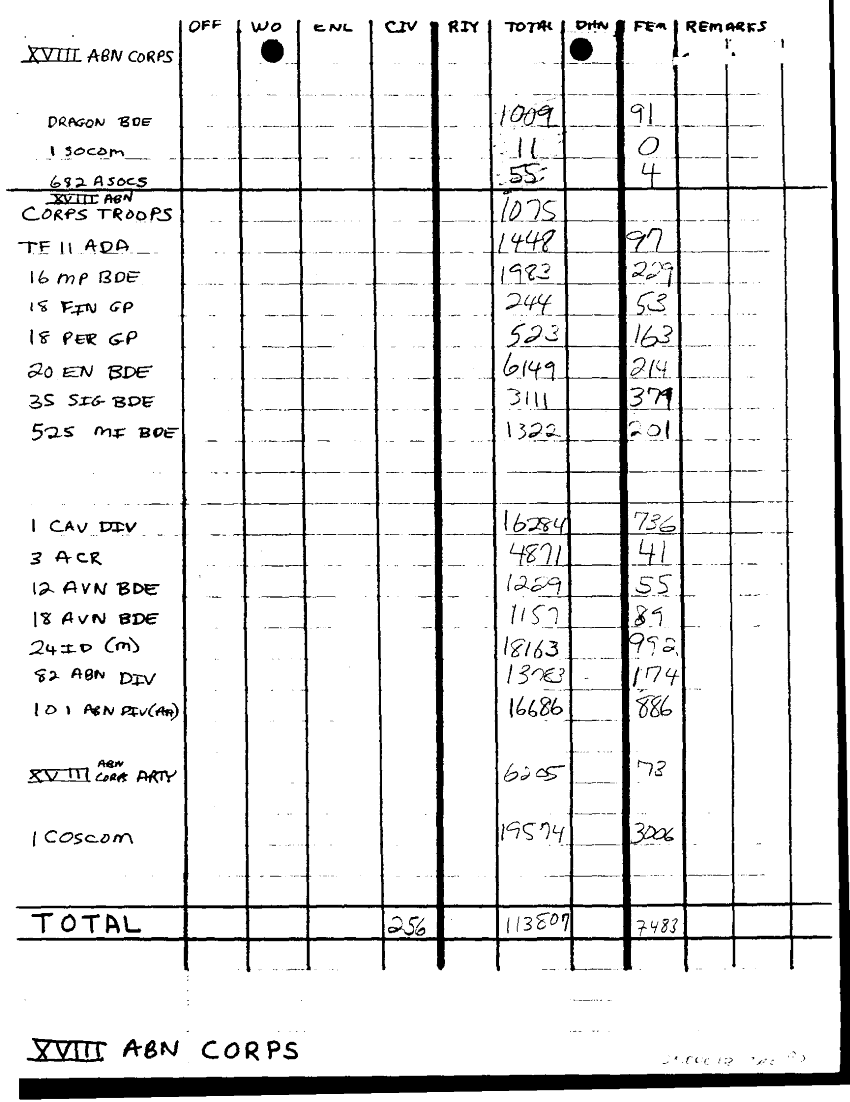 OFF WO ENL CIV RIY TOTAL DHN FEM REMARKS
XVIII ABN CORPS
DRAGON BDE 1009 91
1 SOCOM 11 0
682 ASOCS 55 4
XVIII ABN
CORPS TROOPS 1075
TF 11 ADA 1448 97
16 MP BDE 1983 229
18 FIN GP 244 53
18 PER GP 523 163
20 EN BDE 6149 214
35 SIG BDE 3111 379
525 MI BDE 1322 201
1 CAV DIV 16284 736
3 ACR 4871 41
12 AVN BDE 1269 55
18 AVN BDE 1157 89
24 ID (M) 18163 992
82 ABN DIV 174
101 ABN DIV(AA) 16686 886
XVIII ABN CORPS ARTY 6205 73
1 COSCOM 19574 3006
TOTAL 256 113807 7483
XVIII ABN CORPS